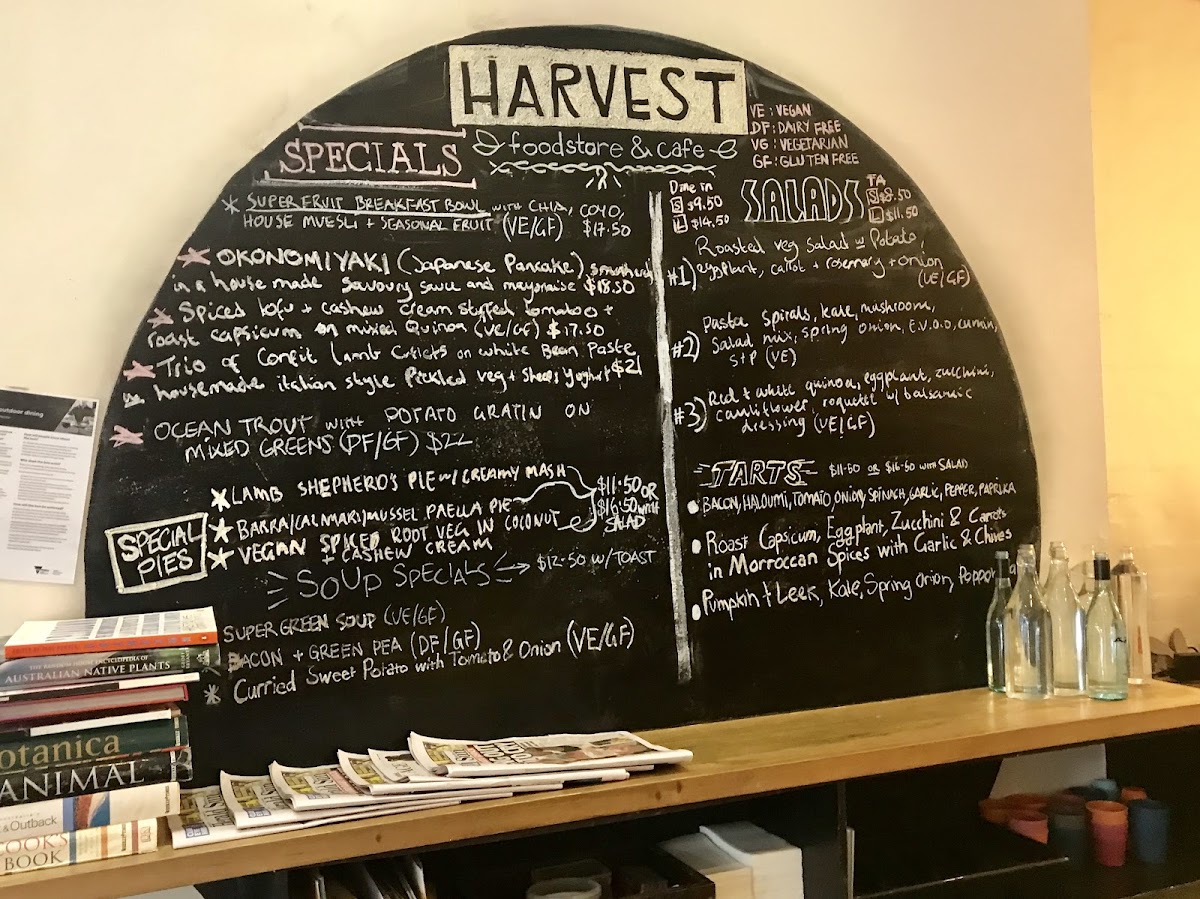 HARVEST
foodstore & cafe
VE: VEGAN
DF: DAIRY FREE
VG: VEGETARIAN
GF: GLUTEN FREE
SPECIALS
* SUPERFRUIT BREAKFAST BOWL WITH CHIA, COYO,
HOUSE MUESLI + SEASONAL FRUIT (VE/GF) $17.50
OKONOMIYAKI (Japanese Pancake)
in a house made savoury sauce and mayonaise $18.50
Spiced tofu + cashew cream stuffed tomato +
roast capsicum on mixed Quinoa (VE/GF) $17.50
Trio of Confit Lamb Cutlets on white Bean Paste
housemade italian style Pickled veg + Sheeps Yoghurt $21
OCEAN TROUT WITH POTATO GRATIN ON
MIXED GREENS (DF/GF) $22
SPECIAL
PIES
LAMB SHEPHERD'S PIE W/ CREAMY MASH
BARRA/CALAMARI/MUSSEL PAELLA PIE
VEGAN SPICED ROOT VEG IN COCONUT
+ CASHEW CREAM
$11.50 OR
$16.50 WITH
SALAD
SOUP SPECIALS → $12.50 W/TOAST
SUPER GREEN SOUP (VE/GF)
BACON + GREEN PEA (DF/GF)
* Curried Sweet Potato with Tomato & Onion (VE/GF)
Dine in
S $9.50
L $14.50
SALADS
TA
S $8.50
L $11.50
#1) Roasted veg Salad w Potato,
eggplant, carrot + rosemary + onion
(VE/GF)
#2) Pasta spirals, kale, mushroom,
Salad mix, spring onion, E.V.O.O, cumin,
S+P (VE)
#3) Red + white quinoa, eggplant, zucchini,
cauliflower, roquette w/ balsamic
dressing (VE/GF)
TARTS $11.50 OR $16.50 WITH SALAD
BACON, HALOUMI, TOMATO, ONION, SPINACH, GARLIC, PEPPER, PAPRIKA
Roast Capsicum, Eggplant, Zucchini & Carrots
in Morroccan Spices with Garlic & Chives
Pumpkin + Leek, Kale, Spring Onion,
outdoor dining
ENCYCLOPEDIA OF
AUSTRALIAN NATIVE PLANTS
otanica
ANIMAL
& Outback
COOK'S
BOOK